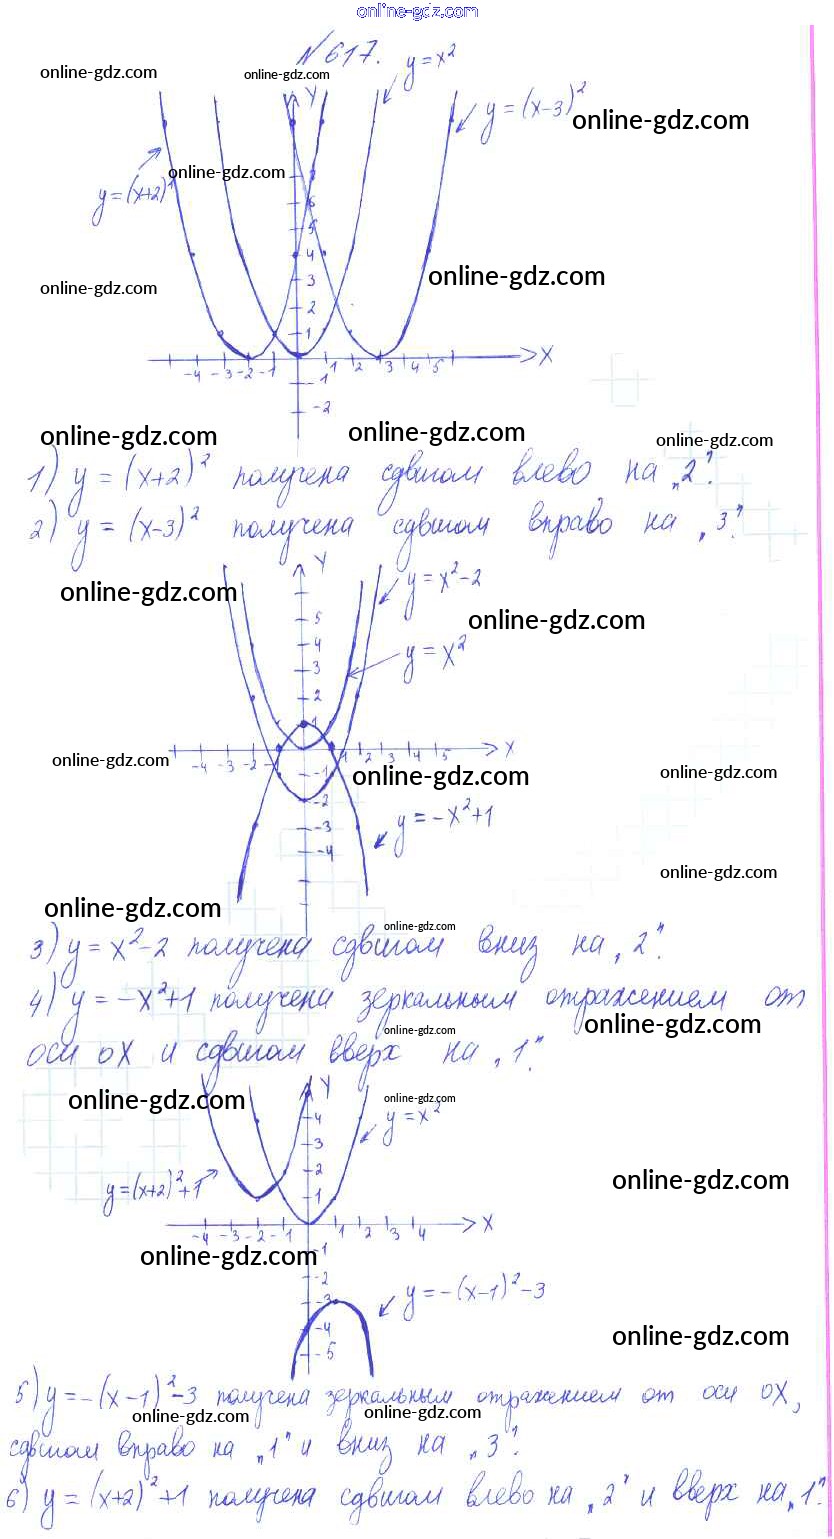 online-gdz.com
№ 617.
y = x²
online-gdz.com
online-gdz.com
y = (x-3)²
online-gdz.com
Y
online-gdz.com
y = (x+2)²
7
6
5
4
online-gdz.com
3
online-gdz.com
2
1
-4 -3 -2 -1 1 2 3 4 5 X
-1
-2
online-gdz.com
online-gdz.com
online-gdz.com
1) y = (x+2)² получена сдвигом влево на „2".
2) y = (x-3)² получена сдвигом вправо на „3".
Y
y = x²-2
online-gdz.com
5
online-gdz.com
4
y = x²
3
2
1
-4 -3 -2 -1 1 2 3 4 5 X
online-gdz.com
-1
online-gdz.com
online-gdz.com
-2
y = -x²+1
-3
-4
online-gdz.com
online-gdz.com
online-gdz.com
3) y = x²-2 получена сдвигом вниз на „2".
4) y = -x²+1 получена зеркальным отражением от
online-gdz.com
online-gdz.com
оси OX и сдвигом вверх на „1".
Y
online-gdz.com
online-gdz.com
4
y = x²
3
2
online-gdz.com
y = (x+2)²+1
1
-4 -3 -2 -1 1 2 3 4 X
-1
online-gdz.com
-2
y = -(x-1)²-3
-3
-4
online-gdz.com
-5
5) y = -(x-1)²-3 получена зеркальным отражением от оси OX,
online-gdz.com
online-gdz.com
сдвигом вправо на „1" и вниз на „3".
6) y = (x+2)²+1 получена сдвигом влево на „2" и вверх на „1".